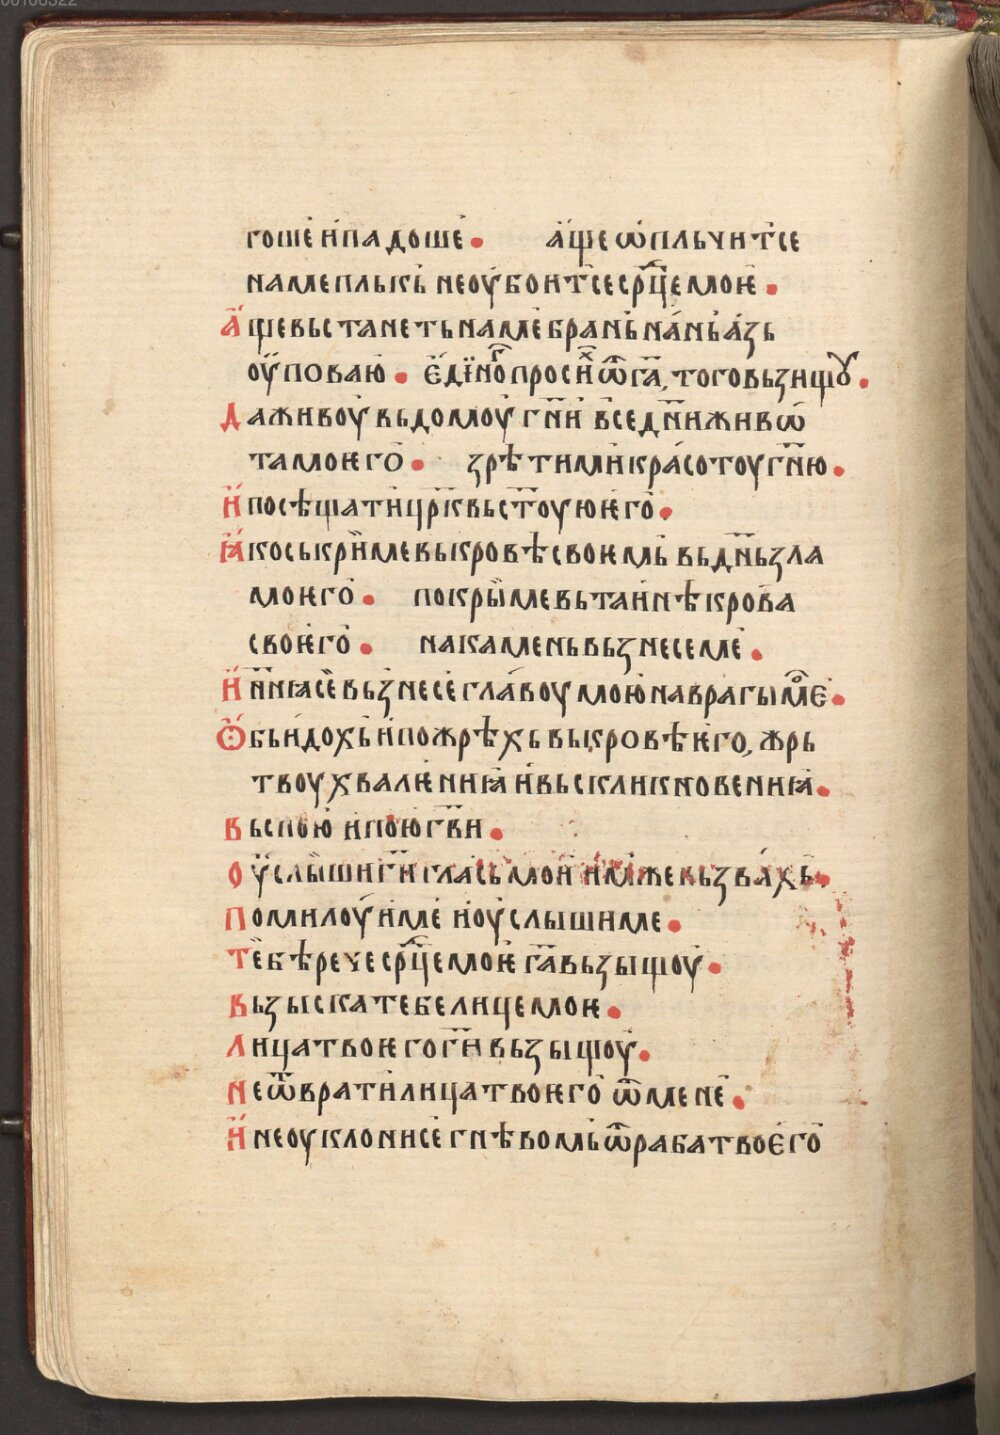 00106522
гоше҆ и҆падоше҆ • а҆́ще ѡ҆пльчит҆се
намеплькь҆ неоу҆боит҆се ср҃ц́емоѥ҆ •
А҆́щевьстанетьна ме҆ брань҆ на́нь а́зь
оу҆поваю҆ • є҆ди́но҆г просих ѿга҃, тоговьзищꙋ •
Даживоу҆ вьдомоу҆ гн҃и҆ в҆седн҃и живѡ҆
тамоѥго҆ • зрѣтими҆ кра́сотоу гн҃ю •
И҆посѣщати цр҃квьст҃оую ѥ҆го҆ •
Ꙗ҆коськри҆ме вькровѣсвоѥмь҆ вьдн҃ьзла
моѥго҆ • покры҆мевьтаи҆нѣкро҆ва
своѥ҆го҆ • накаменьвьзнесеме҆ •
И҆нн҃ꙗсе҆ вьзнесе҆ гла́воу мою҆ наврагы мое҆ •
Ѻ҆бьи҆дохь҆ и҆пожрѣхь вькровѣ ѥ҆го, жрь
твоу хвалѥ҆ниꙗ҆ и҆вьскликновениꙗ҆ •
Вьспою҆ и҆пою҆ гв҃и •
Оу҆слы҆шиги҃ гла́сь҆мои҆ и҆мже вьзва́хь҆ •
Помилоу҆име҆ и҆оу҆слышиме •
Те҆бѣрече ср҃ц́емоѥ҆ га҃ вьзыщоу҆ •
Вьзыскатебелицемоѥ •
Лицатвоѥгоги҃ вьзыщоу҆ •
Неѿврати҆лицатвоѥго҆ ѿмене҆ •
И҆неоуклонисе҆ гнѣвомь҆ ѿрабатвоѥ҆го҆